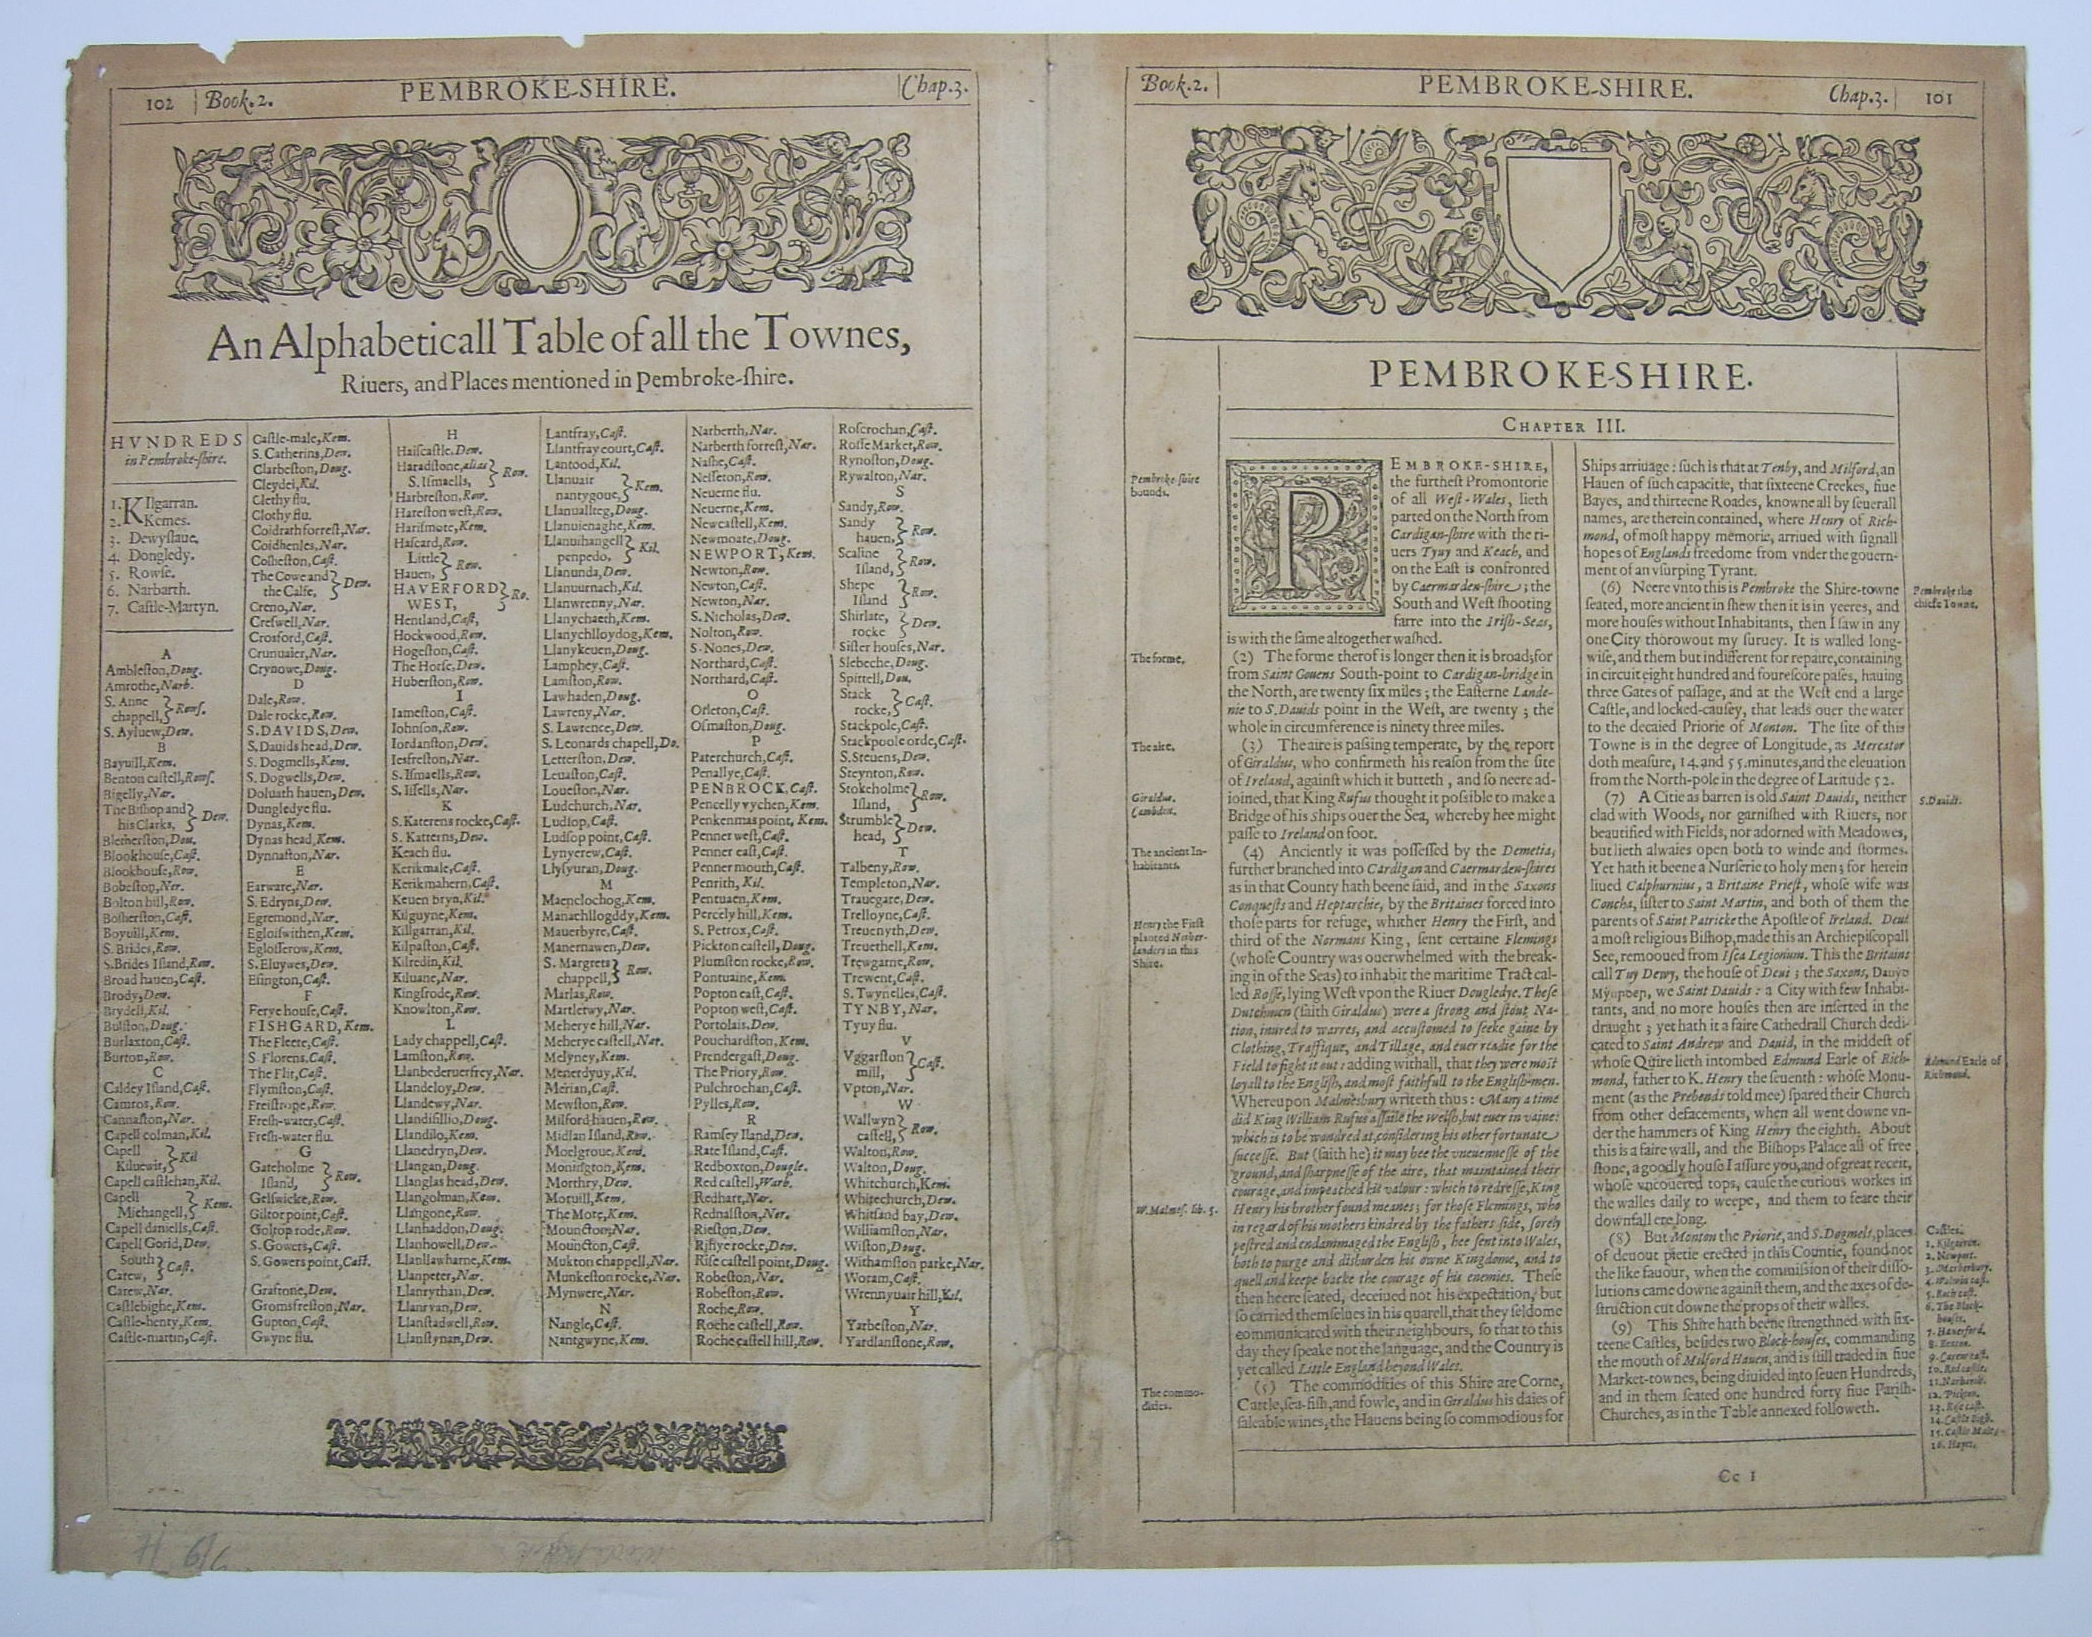 102 Book.2. PEMBROKE-SHIRE. Chap.3.
An Alphabeticall Table of all the Townes,
Riuers, and Places mentioned in Pembroke-ſhire.
HVNDREDS
in Pembroke-ſhire.
1. KIlgarran.
2. Kemes.
3. Dewyſlaue.
4. Dongledy.
5. Rowſe.
6. Narbarth.
7. Caſtle-Martyn.
A
Ambleſton, Doug.
Amrothe, Narb.
S. Anne
chappell, } Rowſ.
S. Ayluew, Dew.
B
Bayuill, Kem.
Benton caſtell, Rowſ.
Bigelly, Nar.
The Biſhop and
his Clarks, } Dew.
Bletherſton, Dou.
Blookhouſe, Caſt.
Blookhouſe, Row.
Bobeſton, Ner.
Bolton hill, Row.
Boſherſton, Caſt.
Boyuill, Kem.
S. Brides, Row.
S. Brides Iſland, Row.
Broad hauen, Caſt.
Brody, Dew.
Brydell, Kil.
Bulſton, Doug.
Burlaxton, Caſt.
Burton, Row.
C
Caldey Iſland, Caſt.
Camros, Row.
Cannaſton, Nar.
Capell colman, Kil.
Capell
Kiluewir, } Kil
Capell caſtlehan, Kil.
Capell
Michangell, } Kem.
Capell daniells, Caſt.
Capell Gorid, Dew.
South
Carew, } Caſt.
Carew, Nar.
Caſtlebighe, Kem.
Caſtle-henty, Kem.
Caſtle-martin, Caſt.
Caſtle-male, Kem.
S. Catherins, Dew.
Clarbeſton, Doug.
Cleydei, Kil.
Clethy flu.
Clothy flu.
Coidrath forreſt, Nar.
Coidhenles, Nar.
Coſheſton, Caſt.
The Cowe and
the Calfe, } Dew.
Creno, Nar.
Creſwell, Nar.
Crosford, Caſt.
Crunuaier, Nar.
Crynowe, Doug.
D
Dale, Row.
Dale rocke, Row.
S. DAVIDS, Dew.
S. Dauids head, Dew.
S. Dogmells, Kem.
S. Dogwells, Dew.
Doluath hauen, Dew.
Dungledye flu.
Dynas, Kem.
Dynas head, Kem.
Dynnaſton, Nar.
E
Earware, Nar.
S. Edryns, Dew.
Egremond, Nar.
Egloiſwithen, Kem.
Egloſſerow, Kem.
S. Eluywes, Dew.
Eſington, Caſt.
F
Ferye houſe, Caſt.
FISHGARD, Kem.
The Fleete, Caſt.
S. Florens, Caſt.
The Flit, Caſt.
Flymſton, Caſt.
Freiſtrope, Row.
Freſh-water, Caſt.
Freſh-water flu.
G
Gateholme
Iſland, } Row.
Gelſwicke, Row.
Giltor point, Caſt.
Goltop rode, Row.
S. Gowers, Caſt.
S. Gowers point, Caſt.
Graſtone, Dew.
Gromsfreſton, Nar.
Gupton, Caſt.
Gwyne flu.
H
Haiſcaſtle, Dew.
Haradſtone, alias
S. Iſmaells, } Row.
Harbreſton, Row.
Hareſton weſt, Row.
Hariſmote, Kem.
Haſcard, Row.
Little
Hauen, } Row.
HAVERFORD
WEST, } Ro.
Hentland, Caſt,
Hockwood, Row.
Hogeſton, Caſt.
The Horſe, Dew.
Huberſton, Row.
I
Iameſton, Caſt.
Iohnſon, Row.
Iordanſton, Dew.
Iesfreſton, Nar.
S. Iſmaells, Row.
S. Iſſells, Nar.
K
S. Katerens rocke, Caſt.
S. Katterns, Dew.
Keach flu.
Kerikmale, Caſt.
Kerikmahern, Caſt.
Keuen bryn, Kil.
Kilguyne, Kem.
Killgarran, Kil.
Kilpaſton, Caſt.
Kilredin, Kil.
Kiluane, Nar.
Kingſrode, Row.
Knowlton, Row.
L
Lady chappell, Caſt.
Lamſton, Row.
Llanbederuerfrey, Nar.
Llandeloy, Dew.
Llandewy, Nar.
Llandiſſilio, Doug.
Llandilo, Kem.
Llanedryn, Dew.
Llangan, Doug.
Llanglas head, Dew.
Llangolman, Kem.
Llangone, Row.
Llanhaddon, Doug.
Llanhowell, Dew.
Llanllawharne, Kem.
Llanpeter, Nar.
Llanrythan, Dew.
Llanryan, Dew.
Llanſtadwell, Row.
Llanſtynan, Dew.
Lantfray, Caſt.
Llantfray court, Caſt.
Lantood, Kil.
Llanuair
nantygoue, } Kem.
Llanuallteg, Doug.
Llanuienaghe, Kem.
Llanuihangell
penpedo, } Kil.
Llanunda, Dew.
Llanuurnach, Kil.
Llanwrenny, Nar.
Llanychaeth, Kem.
Llanychlloydog, Kem.
Llanykeuen, Doug.
Lamphey, Caſt.
Lamſton, Row.
Lawhaden, Doug.
Lawreny, Nar.
S. Lawrence, Dew.
S. Leonards chapell, Do.
Letterſton, Dew.
Leuaſton, Caſt.
Loueſton, Nar.
Ludchurch, Nar.
Ludſop, Caſt.
Ludſop point, Caſt.
Lynyerew, Caſt.
Llyſyuran, Doug.
M
Maenclochog, Kem.
Manachllogddy, Kem.
Mauerbyre, Caſt.
Manernawen, Dew.
S. Margrets
chappell, } Row.
Marlas, Row.
Martletwy, Nar.
Meherye hill, Nar.
Meherye caſtell, Nar.
Melyney, Kem.
Menerdyuy, Kil.
Merian, Caſt.
Mewſton, Row.
Milford hauen, Row.
Midlan Iſland, Row.
Moelgroue, Kem.
Monington, Kem.
Morthry, Dew.
Motuill, Kem.
The Mote, Kem.
Mouncton, Nar.
Mouncton, Caſt.
Mukton chappell, Nar.
Munkeſton rocke, Nar.
Mynwere, Nar.
N
Nangle, Caſt.
Nantgwyne, Kem.
Narberth, Nar.
Narberth forreſt, Nar.
Naſhe, Caſt.
Neſſeton, Row.
Neuerne flu.
Neuerne, Kem.
Newcaſtell, Kem.
Newmoate, Doug.
NEWPORT, Kem.
Newton, Row.
Newton, Caſt.
Newton, Nar.
S. Nicholas, Dew.
Nolton, Row.
S. Nones, Dew.
Northard, Caſt.
Northard, Caſt.
O
Orleton, Caſt.
Oſmaſton, Doug.
P
Paterchurch, Caſt.
Penallye, Caſt.
PENBROCK, Caſt.
Pencelly vychen, Kem.
Penkenmas point, Kem.
Penner weſt, Caſt.
Penner eaſt, Caſt.
Penner mouth, Caſt.
Penrith, Kil.
Pentuaen, Kem.
Percely hill, Kem.
S. Petrox, Caſt.
Pickton caſtell, Doug.
Plumſton rocke, Row.
Pontuaine, Kem.
Popton eaſt, Caſt.
Popton weſt, Caſt.
Portolais, Dew.
Pouchardſton, Kem.
Prendergaſt, Doug.
The Priory, Row.
Pulchrochan, Caſt.
Pylles, Row.
R
Ramſey Iland, Dew.
Rate Iſland, Caſt.
Redboxton, Dougle.
Red caſtell, Warb.
Redhart, Nar.
Rednalſton, Ner.
Rieſton, Dew.
Rifiye rocke, Dew.
Riſe caſtell point, Doug.
Robeſton, Nar.
Robeſton, Row.
Roche, Row.
Roche caſtell, Row.
Roche caſtell hill, Row.
Roſcrochan, Caſt.
Roſſe Market, Row.
Rynoſton, Doug.
Rywalton, Nar.
S
Sandy, Row.
Sandy
hauen, } Row.
Scaline
Iſland, } Row.
Shepe
Iſland } Row.
Shirlate,
rocke } Dew.
Siſter houſes, Nar.
Slebeche, Doug.
Spittell, Dou.
Stack
rocke, } Caſt.
Stackpole, Caſt.
Stackpoole orde, Caſt.
S. Steuens, Dew.
Steynton, Row.
Stokeholme
Iſland, } Row.
Strumble
head, } Dew.
T
Talbeny, Row.
Templeton, Nar.
Trauegare, Dew.
Trelloyne, Caſt.
Treuenyth, Dew.
Treuethell, Kem.
Trewgarne, Row.
Trewent, Caſt.
S. Twynelles, Caſt.
TYNBY, Nar.
Tyuy flu.
V
Vggarſton
mill, } Caſt.
Vpton, Nar.
W
Wallwyn
caſtell, } Row.
Walton, Row.
Walton, Doug.
Whitchurch, Kem.
Whitechurch, Dew.
Whitſand bay, Dew.
Williamſton, Nar.
Wiſton, Doug.
Withamſton parke, Nar.
Woram, Caſt.
Wrennyuair hill, Kil.
Y
Yarbeſton, Nar.
Yardlanſtone, Row.
Book.2. PEMBROKE-SHIRE. Chap.3. 101
PEMBROKE-SHIRE.
CHAPTER III.
Pembroke-ſhire
bounds.
PEMBROKE-SHIRE,
the furtheſt Promontorie
of all Weſt-Wales, lieth
parted on the North from
Cardigan-ſhire with the ri-
uers Tyuy and Keach, and
on the Eaſt is confronted
by Caermarden-ſhire; the
South and Weſt ſhooting
farre into the Iriſh-Seas,
is with the ſame altogether waſhed.
The forme.
(2) The forme therof is longer then it is broad; for
from Saint Gouens South-point to Cardigan-bridge in
the North, are twenty ſix miles; the Eaſterne Lande-
nie to S. Dauids point in the Weſt, are twenty; the
whole in circumference is ninety three miles.
The aire.
(3) The aire is paſſing temperate, by the report
of Giraldus, who confirmeth his reaſon from the ſite
of Ireland, againſt which it butteth, and ſo neere ad-
Giraldus.
Cambden.
joined, that King Rufus thought it poſſible to make a
Bridge of his ſhips ouer the Sea, whereby hee might
paſſe to Ireland on foot.
The ancient In-
habitants.
(4) Anciently it was poſſeſſed by the Demetia,
further branched into Cardigan and Caermarden-ſhires
as in that County hath beene ſaid, and in the Saxons
Conqueſts and Heptarchie, by the Britaines forced into
Henry the Firſt
planted Nether-
landers in this
Shire.
thoſe parts for refuge, whither Henry the Firſt, and
third of the Normans King, ſent certaine Flemings
(whoſe Country was ouerwhelmed with the break-
ing in of the Seas) to inhabit the maritime Tract cal-
led Roſſe, lying Weſt vpon the Riuer Dougledye. Theſe
Dutchmen (ſaith Giraldus) were a ſtrong and ſtout Na-
tion, inured to warres, and accuſtomed to ſeeke gaine by
Clothing, Traffique, and Tillage, and euer readie for the
Field to fight it out: adding withall, that they were moſt
loyall to the Engliſh, and moſt faithfull to the Engliſh-men.
Whereupon Malmesbury writeth thus: Many a time
did King William Rufus aſſaile the Welſh, but euer in vaine:
which is to be wondred at, conſidering his other fortunate
ſucceſſe. But (ſaith he) it may bee the vneuenneſſe of the
ground, and ſharpneſſe of the aire, that maintained their
courage, and impeached his valour: which to redreſſe, King
W. Malmeſ. lib. 5.
Henry his brother found meanes; for thoſe Flemings, who
in regard of his mothers kindred by the fathers ſide, ſorely
peſtred and endammaged the Engliſh, hee ſent into Wales,
both to purge and disburden his owne Kingdome, and to
quell and keepe backe the courage of his enemies. Theſe
then heere ſeated, deceiued not his expectation, but
ſo carried themſelues in his quarell, that they ſeldome
communicated with their neighbours, ſo that to this
day they ſpeake not the language, and the Country is
yet called Little England beyond Wales.
The commo-
dities.
(5) The commodities of this Shire are Corne,
Cattle, ſea-fiſh, and fowle, and in Geraldus his daies of
ſaleable wines, the Hauens being ſo commodious for
Ships arriuage: ſuch is that at Tenby, and Milford, an
Hauen of ſuch capacitie, that ſixteene Creekes, fiue
Bayes, and thirteene Roades, knowne all by ſeuerall
names, are therein contained, where Henry of Rich-
mond, of moſt happy memorie, arriued with ſignall
hopes of Englands freedome from vnder the gouern-
ment of an vſurping Tyrant.
Pembroke the
chiefe Towne.
(6) Neere vnto this is Pembroke the Shire-towne
ſeated, more ancient in ſhew then it is in yeeres, and
more houſes without Inhabitants, then I ſaw in any
one City thorowout my ſuruey. It is walled long-
wiſe, and them but indifferent for repaire, containing
in circuit eight hundred and foureſcore paſes, hauing
three Gates of paſſage, and at the Weſt end a large
Caſtle, and locked-cauſey, that leads ouer the water
to the decaied Priorie of Monton. The ſite of this
Towne is in the degree of Longitude, as Mercator
doth meaſure, 14. and 55. minutes, and the eleuation
from the North-pole in the degree of Latitude 52.
S. Dauids.
(7) A Citie as barren is old Saint Dauids, neither
clad with Woods, nor garniſhed with Riuers, nor
beautified with Fields, nor adorned with Meadowes,
but lieth alwaies open both to winde and ſtormes.
Yet hath it beene a Nurſerie to holy men; for herein
liued Calphurnius, a Britaine Prieſt, whoſe wife was
Concha, ſiſter to Saint Martin, and both of them the
parents of Saint Patricke the Apoſtle of Ireland. Deui
a moſt religious Biſhop, made this an Archiepiſcopall
See, remooued from Iſca Legionum. This the Britains
call Tuy Dewy, the houſe of Deui; the Saxons,
we Saint Dauids: a City with few Inhabi-
tants, and no more houſes then are inſerted in the
draught; yet hath it a faire Cathedrall Church dedi-
cated to Saint Andrew and Dauid, in the middeſt of
Edmund Earle of
Richmond.
whoſe Quire lieth intombed Edmund Earle of Rich-
mond, father to K. Henry the ſeuenth: whoſe Monu-
ment (as the Prebends told mee) ſpared their Church
from other defacements, when all went downe vn-
der the hammers of King Henry the eighth. About
this is a faire wall, and the Biſhops Palace all of free
ſtone, a goodly houſe I aſſure you, and of great receit,
whoſe vncouered tops, cauſe the curious workes in
the walles daily to weepe, and them to feare their
downfall ere long.
(8) But Monton the Priorie, and S. Dogmels, places
of deuout pietie erected in this Countie, found not
the like fauour, when the commiſſion of their diſſo-
lutions came downe againſt them, and the axes of de-
ſtruction cut downe the props of their walles.
(9) This Shire hath beene ſtrengthned with ſix-
teene Caſtles, beſides two Block-houſes, commanding
the mouth of Milford Hauen, and is ſtill traded in fiue
Market-townes, being diuided into ſeuen Hundreds,
and in them ſeated one hundred forty fiue Pariſh-
Churches, as in the Table annexed followeth.
Caſtles.
1. Kilgarren.
2. Newport.
3. Marberbury.
4. Walwin caſt.
5. Roch caſt.
6. The Block-
houſe.
7. Hauerford.
8. Benton.
9. Carew caſt.
10. Red caſtle.
11. Narberth.
12. Picton.
13. Riſe caſt.
14. Caſtle Bigh.
15. Caſtle Male.
Cc 1